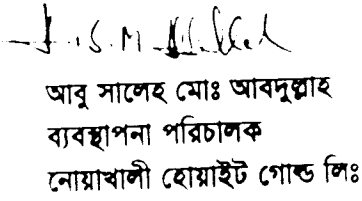 আবু সালেহ মোঃ আবদুল্লাহ
ব্যবস্থাপনা পরিচালক
নোয়াখালী হোয়াইট গোল্ড লিঃ